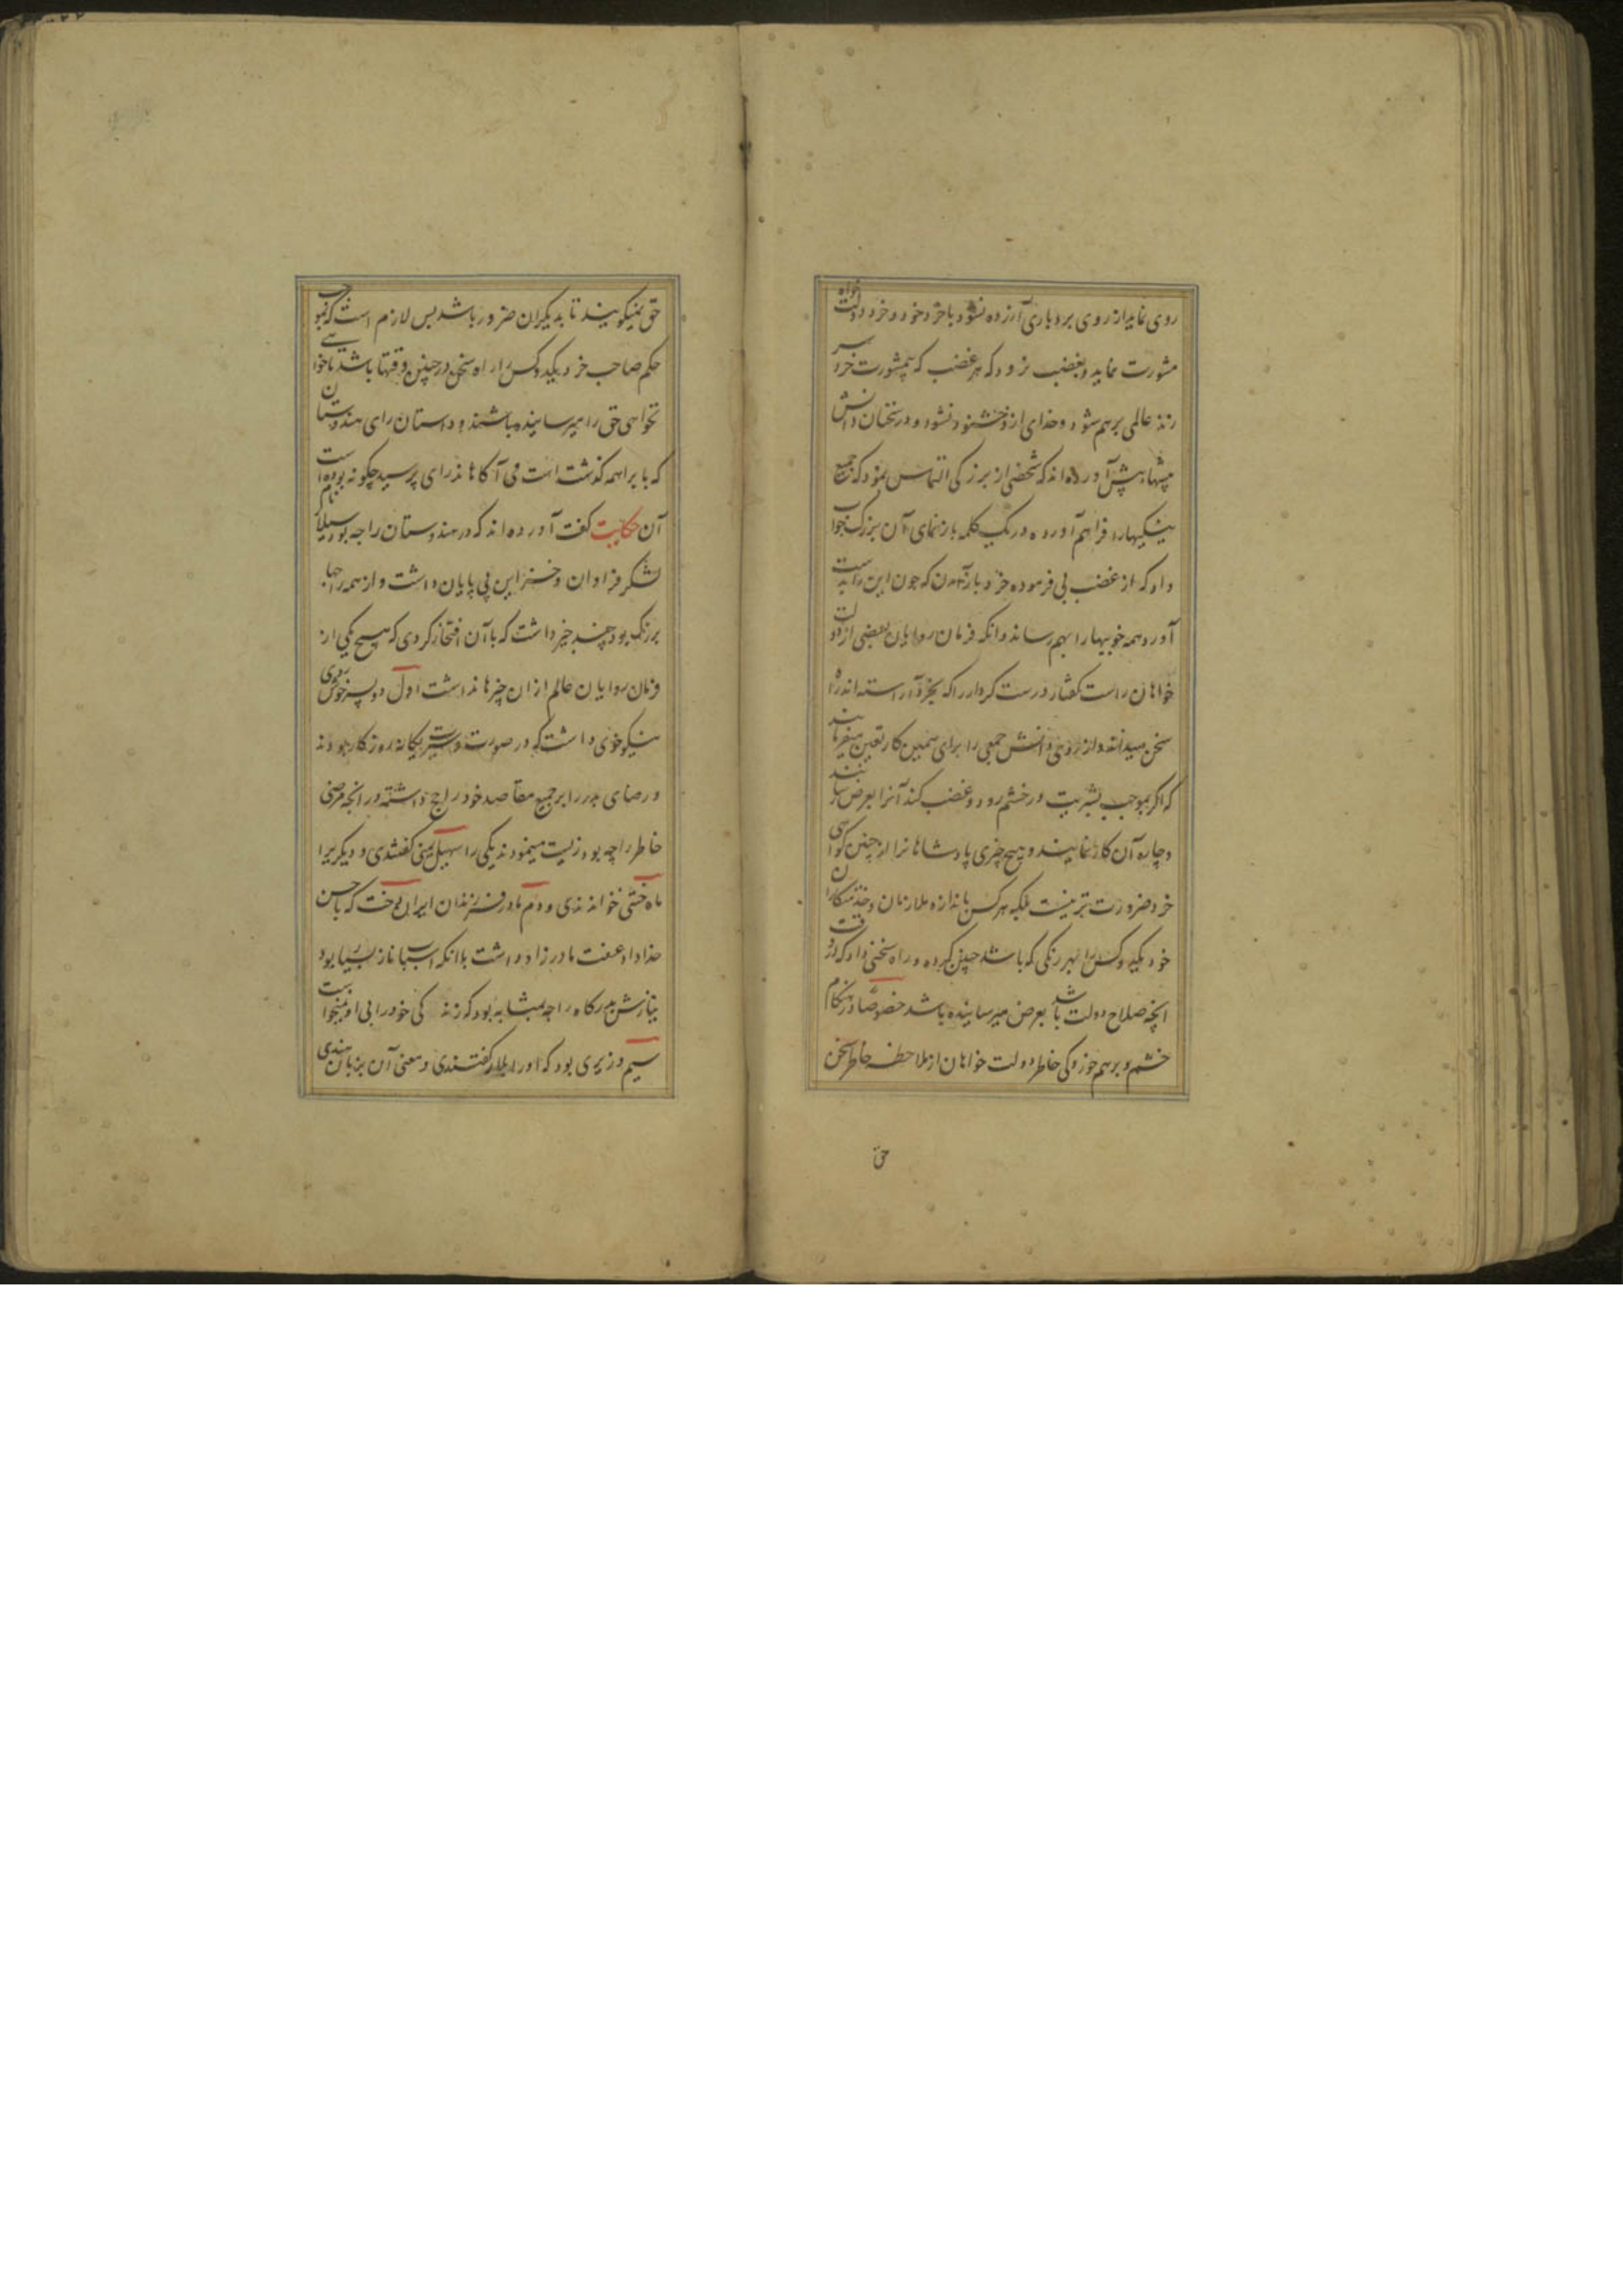 روی نماید از روی بردباری آزرده نشود با خرد خود و خرد دولت خواه
مشورت نماید و بغضب نرود که هر غضب که بیمشورت خرد سر
زند عالمی برهم شود و خدای ازو خشنود نشود و در سخنان دانش
پیشها پیش آورده اند که شخصی از بزرگی التماس نمود که جمیع
نیکیها را فراهم آورده در یک کلمه باز نمای آن بزرگ جواب
داد که از غضب بی فرموده خرد باز آمدن که چون این را بدست
آورد همه خوبیها را بهم رساند و انکه فرمان روایان بعضی از دولت
خواهان راست گفتار درست کردار را که بخرد آراسته اند راه
سخن میدهند و از روی دانش جمعی را برای همین کار تعین میفرمایند
که اگر بموجب بشریت در خشم رود و غضب کند آنرا بعرض رسانند
و چاره آن کار نمایند و هیچ چیزی پادشاهانرا از چنین گواهی
خرد ضرورت تر نیست بلکه هر کس باندازه ملازمان و خدمتکاران
خود یکدو کس را بهر رنگی که باشد چنین کرده و راه سخنی داد که در وقت
انچه صلاح دولت باشد بعرض میرسانیده باشد خصوصًا در هنکام
خشم و برهم خوردکی خاطر دولت خواهان از ملاحظه خاطر سخن
حق
حق نمیکویند تا بدیکران ضرور باشد پس لازم است که بموجب
حکم صاحب خرد یکدو کس را راه سخن در چنین وقتها باشد تا خواهی
نخواهی حق را میرسانیده باشند و داستان رای هندوستان
که با براهمه کذشت است می آکاهاند رای پرسید چکونه بوده است
آن حکایت کفت آورده اند که در هندوستان راجه بود هیلار نام
لشکر فراوان و خزاین بی پایان داشت و از همه راجها
بزرک بود چند چیز داشت که بآن افتخار کردی که هیچ یکی از
فرمان روایان عالم ازان چیزها نداشت اول دو پسر خوش روی
نیکو خوی داشت که در صورت و سیرت یکانه روزکار بودند
و رضای پدر را بر جمیع مقاصد خود راجح داشته در انچه مرضی
خاطر راجه بود زیست مینمودند یکی را سهیل یمنی کفتندی و دیکریرا
ماه ختنی خواندندی و دوم مادر فرزندان ایران دخت که با حسن
خداداد عفت مادرزاد داشت بلانکه اسباب ناز بسیار بود
نیازش بدرکاه راجه بمثابه بود که زندکی خود را بی او نمیخواست
سیم وزیری بود که او را بلار کفتندی و معنی آن بزبان هندی